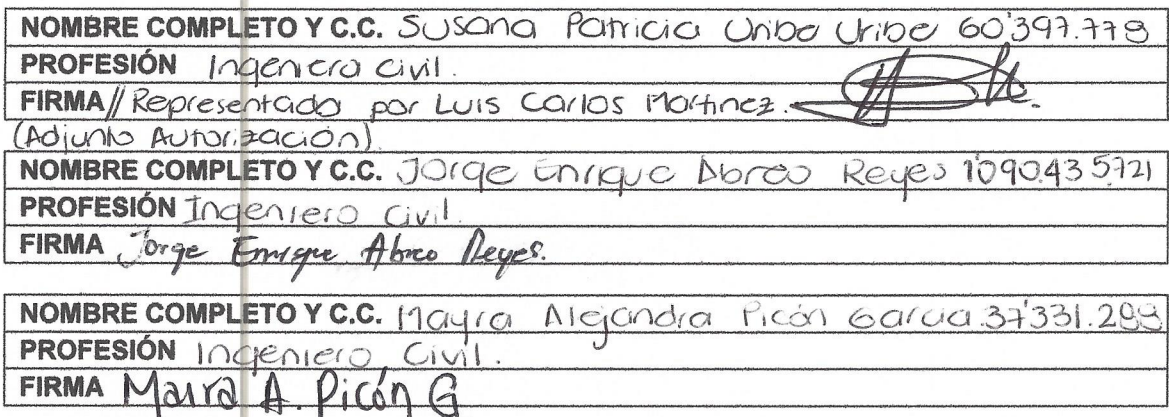 NOMBRE COMPLETO Y C.C. Susana Patricia Uribe Uribe 60'397.778
PROFESIÓN Ingeniera civil.
FIRMA // Representado por Luis Carlos Martinez.
(Adjunto Autorización)
NOMBRE COMPLETO Y C.C. Jorge Enrique Abreo Reyes 1'090.435721
PROFESIÓN Ingeniero Civil.
FIRMA Jorge Enrique Abreo Reyes.
NOMBRE COMPLETO Y C.C. Mayra Alejandra Picón Garcia 37'331.288
PROFESIÓN Ingeniero Civil.
FIRMA Maira A. Picón G